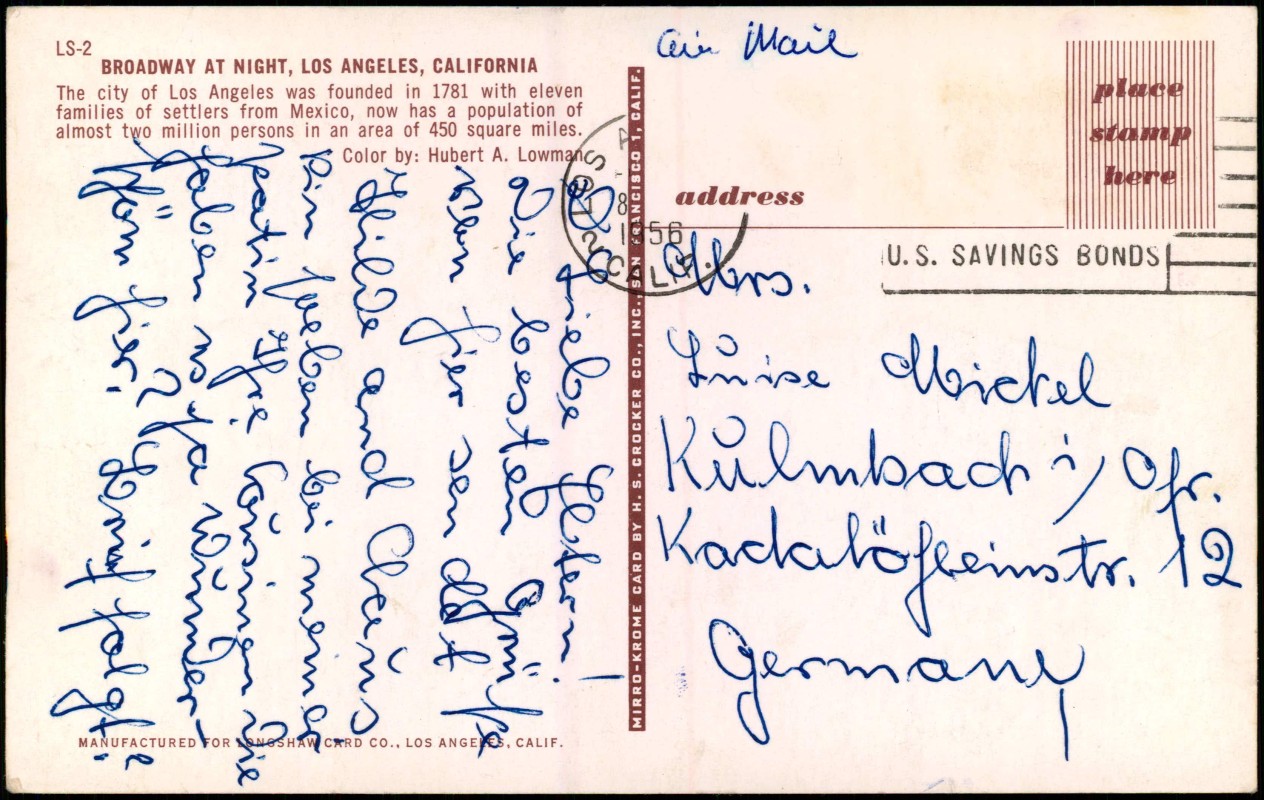 LS-2
BROADWAY AT NIGHT, LOS ANGELES, CALIFORNIA
The city of Los Angeles was founded in 1781 with eleven
families of settlers from Mexico, now has a population of
almost two million persons in an area of 450 square miles.
Color by: Hubert A. Lowman
Liebe Eltern!
Die besten Grüße
von hier sendet
Hilde und
Bin soeben bei meiner
Patin Ihre Cousinen sie
haben es ja wunder-
schön hier. Brief folgt.
MANUFACTURED FOR LONGSHAW CARD CO., LOS ANGELES, CALIF.
MIRRO-KROME CARD BY H. S. CROCKER CO., INC., SAN FRANCISCO 1, CALIF.
Air Mail
place
stamp
here
address
LOS A
8
1956
CALIF.
U.S. SAVINGS BONDS
Mrs.
Luise Mickel
Kulmbach i/Ofr.
12
Germany